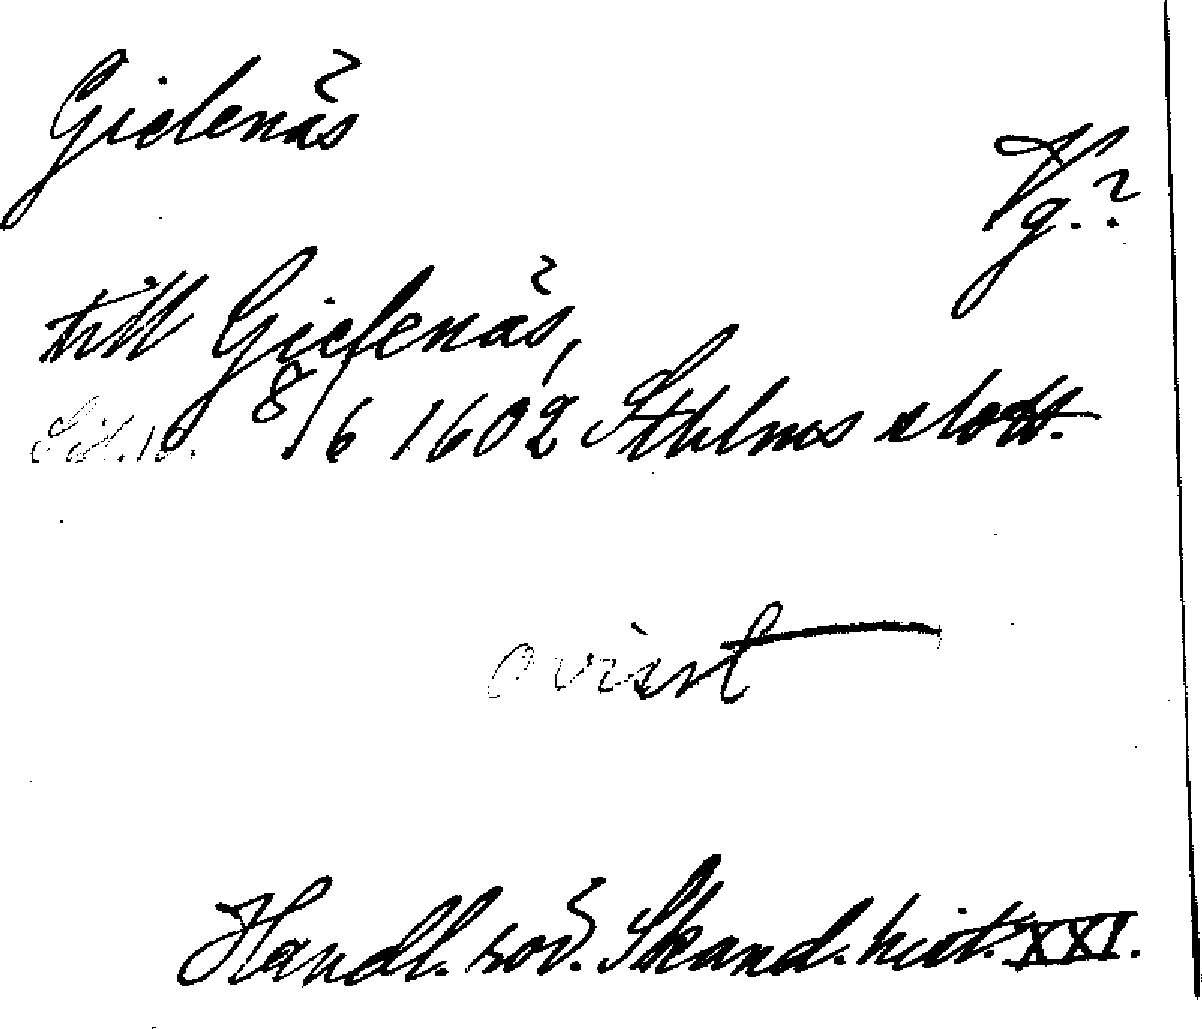 Gielenäs
Vg.?
till Gielenäs,
8/6 1602 Sthlms slott.
ovisst
Handl. rör. Skand. hist. XXI.